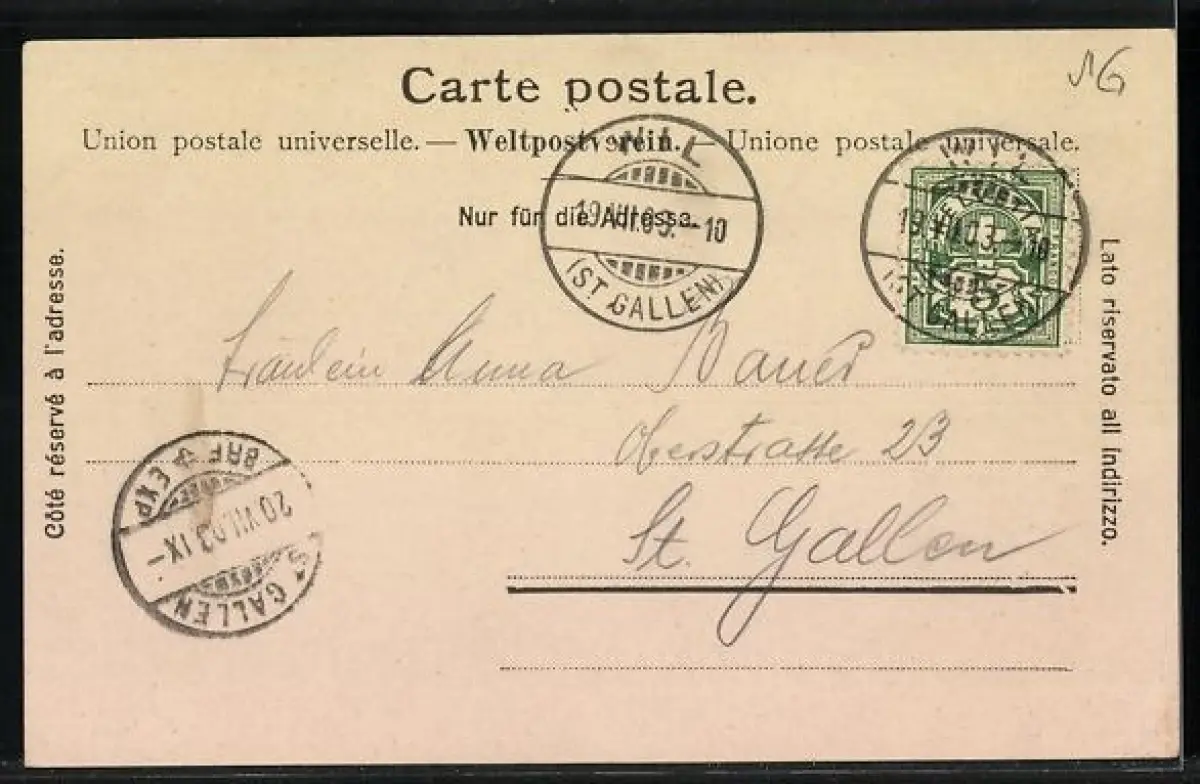 Carte postale.
Union postale universelle. — Weltpostverein. — Unione postale universale.
Nur für die Adresse.
Côté réservé à l'adresse.
Lato riservato all indirizzo.
WIL
19.VII.03.–10
(ST. GALLEN)
WYL
19.VII.03.–10
(ST. GALLEN)
Fräulein Anna Bauer
Oberstrasse 23
St. Gallen
BRF EXP
20.VII.03.IX–
ST GALLEN